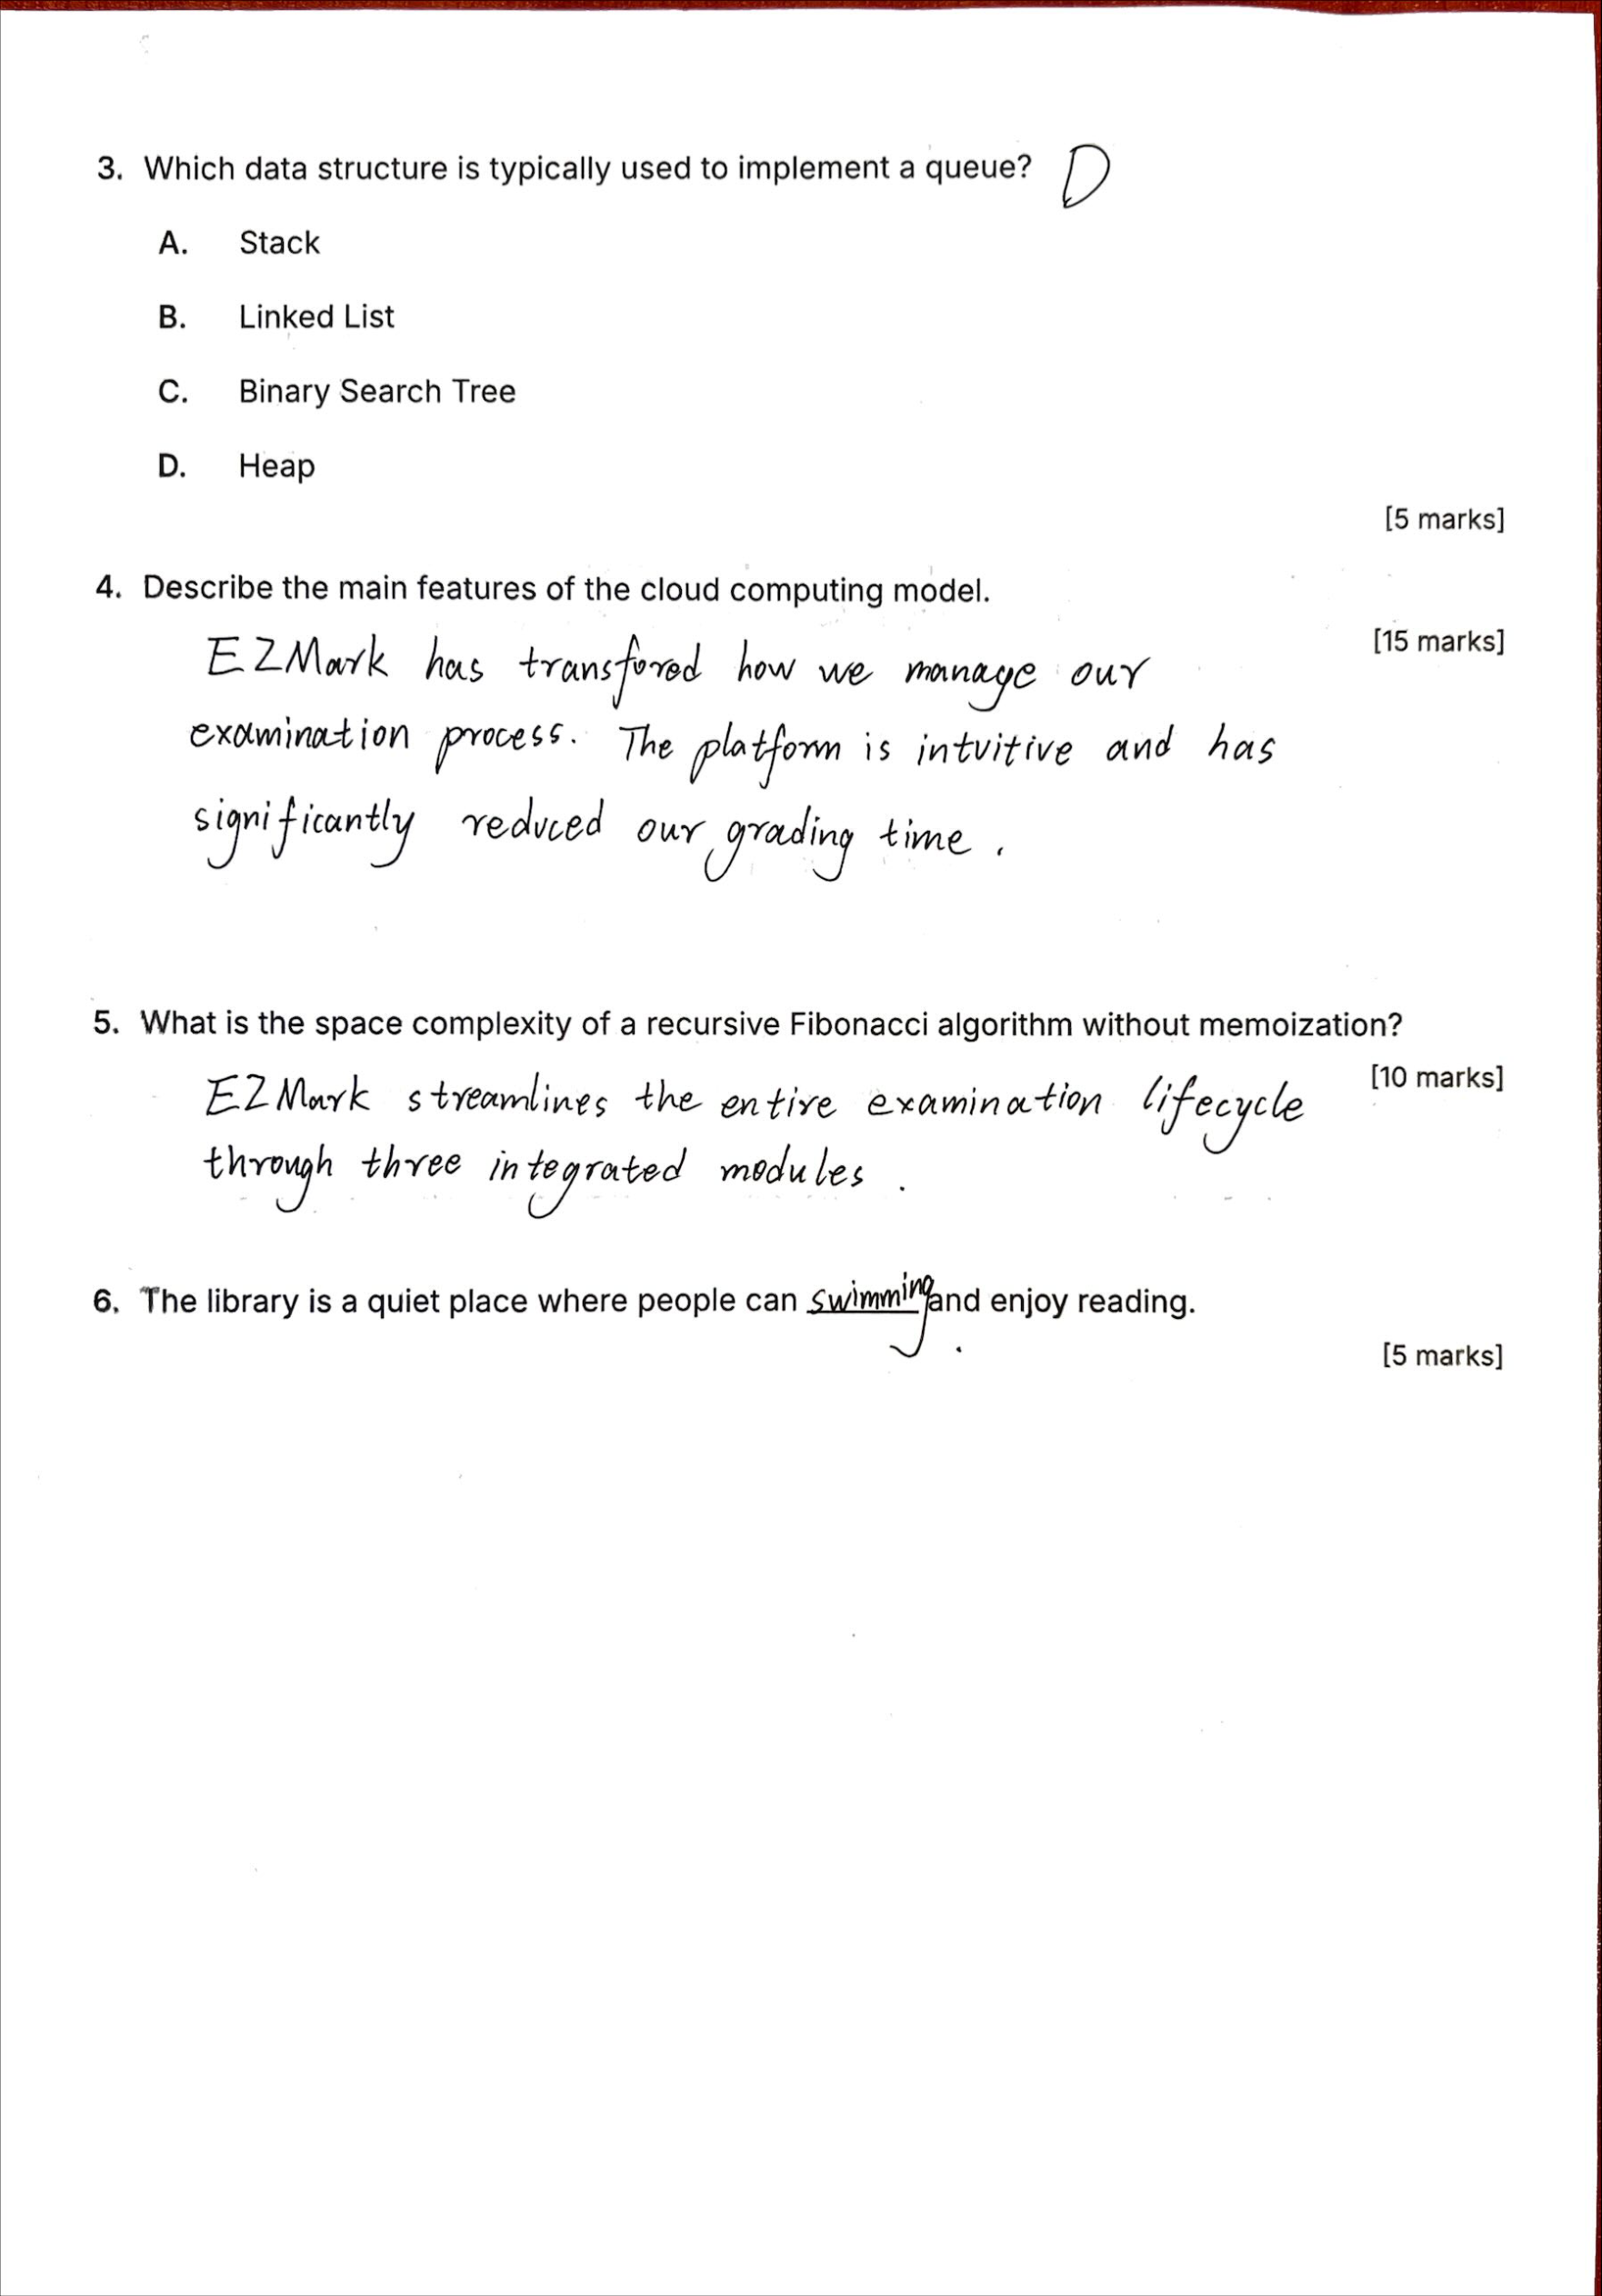 3. Which data structure is typically used to implement a queue? D
A. Stack
B. Linked List
C. Binary Search Tree
D. Heap
[5 marks]
4. Describe the main features of the cloud computing model.
[15 marks]
EZMark has transfored how we manage our
examination process. The platform is intuitive and has
significantly reduced our grading time.
5. What is the space complexity of a recursive Fibonacci algorithm without memoization?
[10 marks]
EZMark streamlines the entire examination lifecycle
through three integrated modules.
6. The library is a quiet place where people can swimming and enjoy reading.
[5 marks]